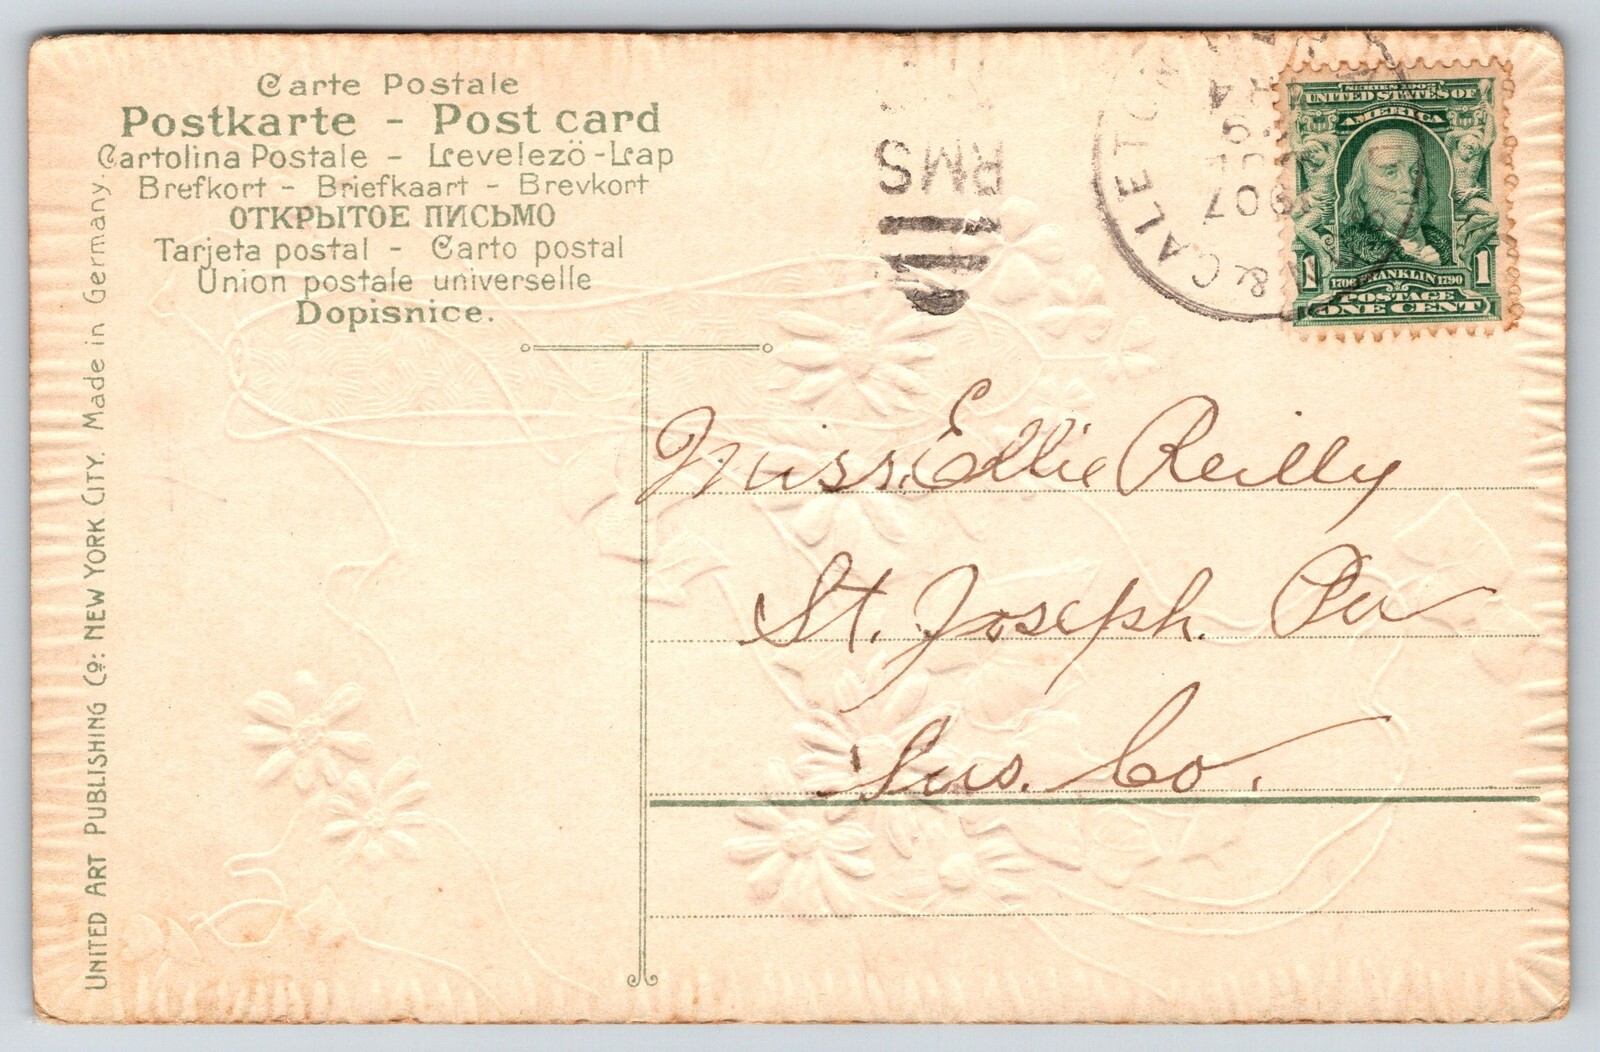 Carte Postale
Postkarte - Post card
Cartolina Postale - Levelezö-Lap
Brefkort - Briefkaart - Brevkort
ОТКРЫТОЕ ПИСЬМО
Tarjeta postal - Carto postal
Union postale universelle
Dopisnice.
UNITED ART PUBLISHING Co: NEW YORK CITY. Made in Germany.
RMS
& CALETO
1907
SERIES 1902
UNITED STATES OF
AMERICA
1 1706 FRANKLIN 1790 1
POSTAGE
ONE CENT
Miss. Ellie Reilly
St. Joseph. Pa
Sus. Co.